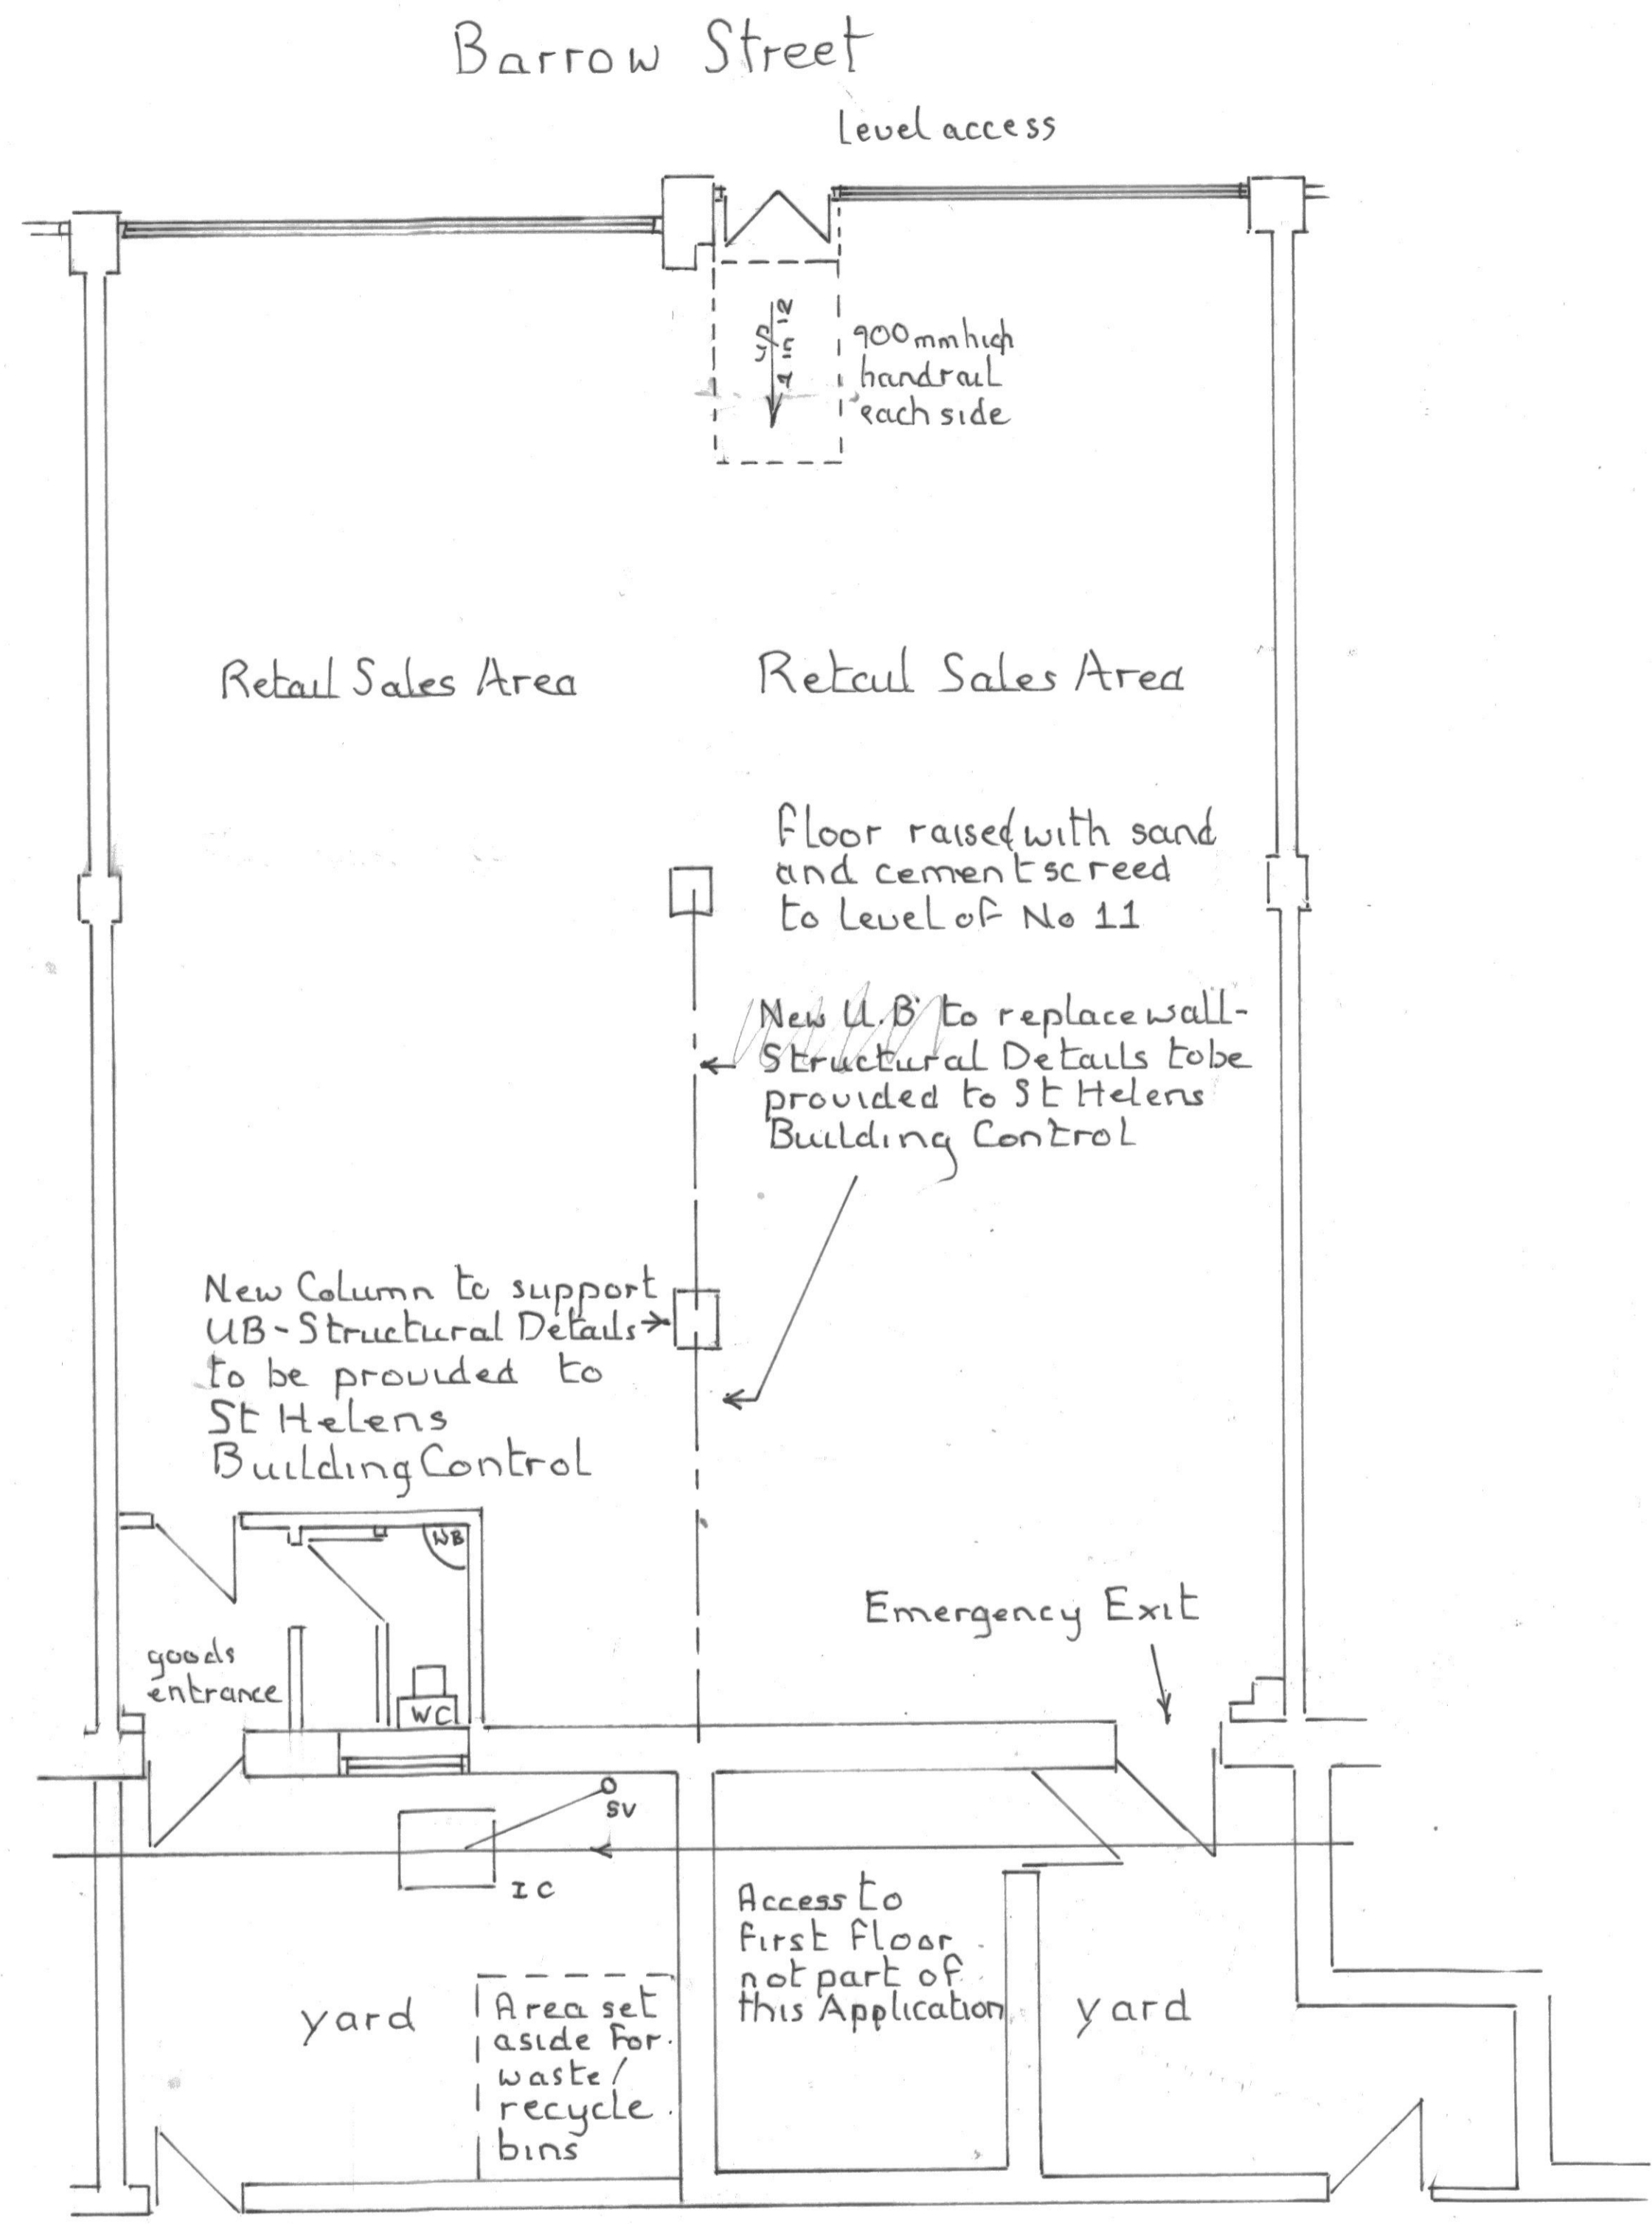 Barrow Street
Level access
UP
1 in 12
900mm high
handrail
each side
Retail Sales Area
Retail Sales Area
Floor raised with sand
and cement screed
to level of No 11
New U.B to replace wall-
Structural Details to be
provided to St Helens
Building Control
New Column to support
UB-Structural Details
to be provided to
St Helens
Building Control
WB
Emergency Exit
goods
entrance
WC
SV
IC
Access to
First Floor
not part of
this Application
yard
Area set
aside for
waste/
recycle
bins
yard